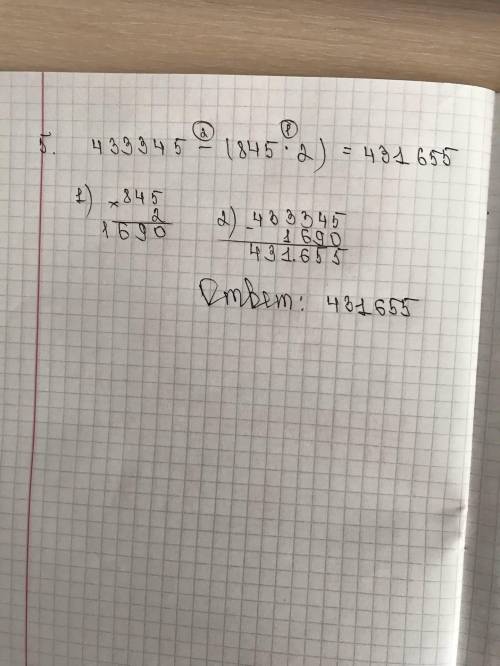 5. 433345 - (845 · 2) = 431655
2 1
1) × 845
2
1690
2) - 433345
1690
431655
Ответ: 431655